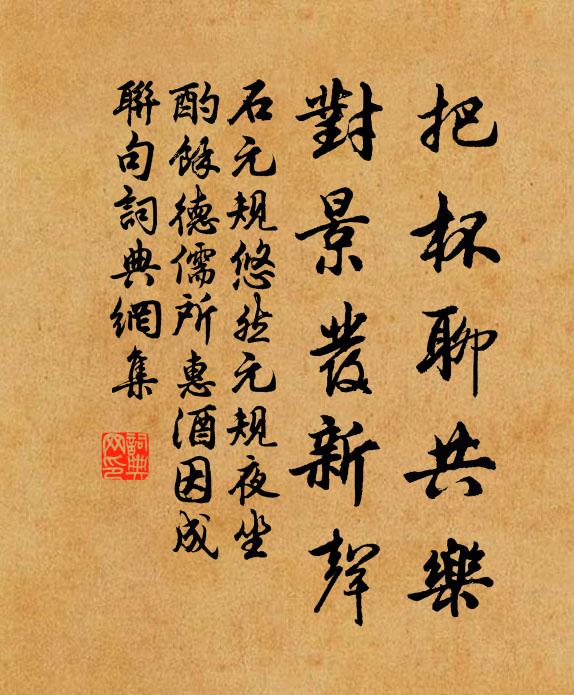 把杯聊共樂
對景發新聲
石元規悠然元規夜坐
酌餘德儒所惠酒因成
聯句詞典網集
詞典
网印